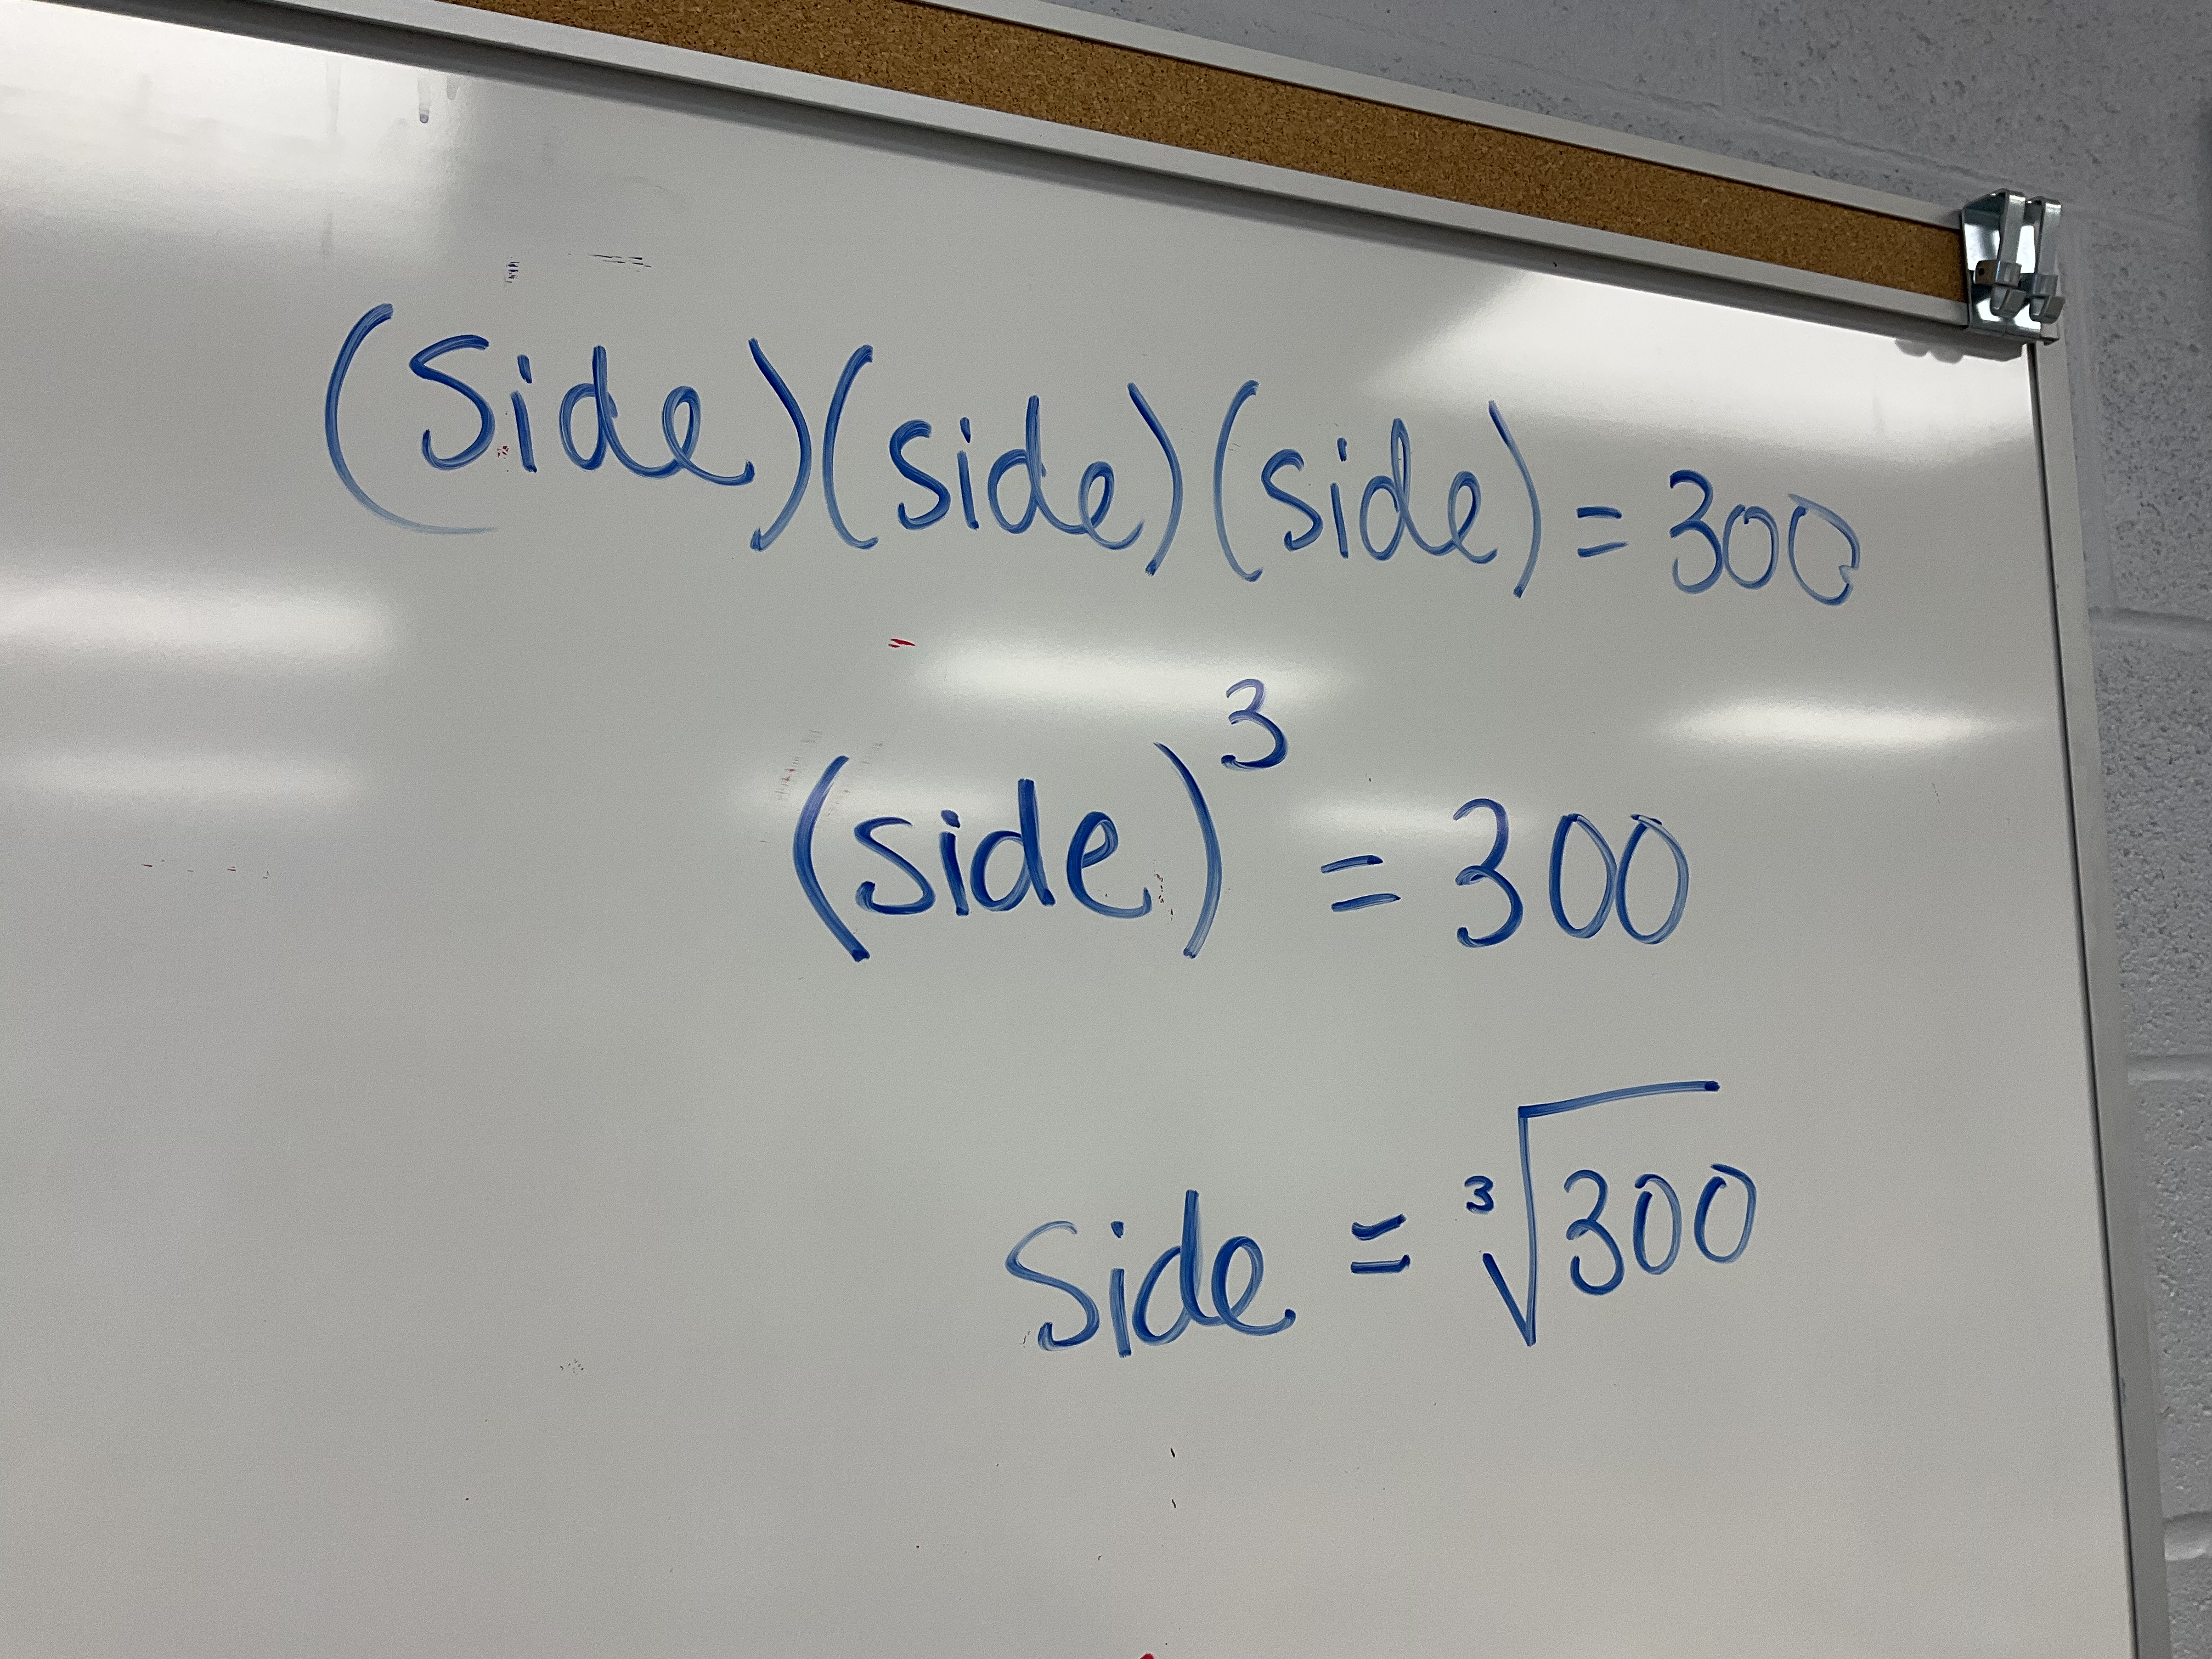 (Side)(side)(side) = 300
(side)³ = 300
Side = ³√300